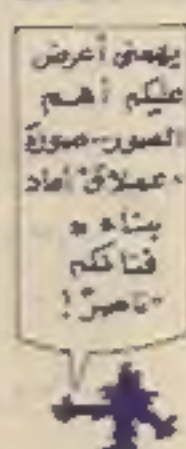 يهمني أعرض
عليكم أهم
الصور-صورة
عملاق أعاد
بناء
قناتكم
ناصر!